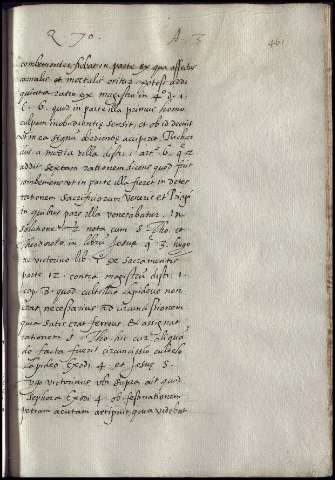 Q 70. A. 3 461
convenienter fiebat in parte ex qua affectus
carnalis et mortalis origo potest addi
quinta ratio ex magistro in 4º d. 1.
C. 6. quod in parte illa primus homo
culpam inobedientiæ sensit, et ob id decuit
ut in ea signum obedientiæ acciperet. Richar
dus a media villa dist. 1. art. 6. q. 2
addit sextam rationem dicens quod fuit
conveniens ut in parte illa fieret in detes
tationem sacrificiorum Veneris et Priapi
in quibus pars illa venerabatur. In
solutione nota cum S. Tho. et
Theodoreto in librum Josue q. 3. hugo
de victorino lib. de sacramentis
parte 12. contra magistrum dist. 1.
cap. quod cultellus lapideus non
erat necessarius ad circuncisionem
quia satis erat ferreus et assignat
rationem S. Tho. hic cur aliqua
do facta fuerit circuncisio cultello
lapideo Exodi 4. et Josue 5.
hugo victorinus ubi supra ait quod
Sephora Exodi 4. ob festinationem
petram acutam arripuit qua videbat